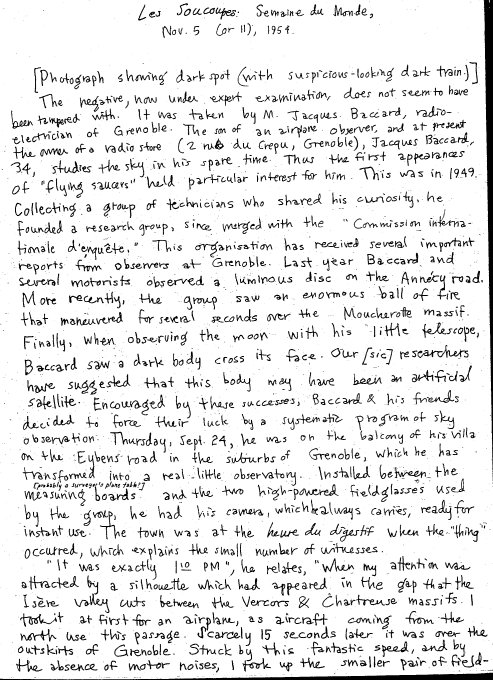 Les Soucoupes. Semaine du Monde,
Nov. 5 (or 11), 1954.
[Photograph showing dark spot (with suspicious-looking dark train.)]
The negative, now under expert examination, does not seem to have
been tampered with. It was taken by M. Jacques Baccard, radio-
electrician of Grenoble. The son of an airplane observer, and at present
the owner of a radio store (2 rue du Crepu, Grenoble), Jacques Baccard,
34, studies the sky in his spare time. Thus the first appearances
of "flying saucers" held particular interest for him. This was in 1949.
Collecting a group of technicians who shared his curiosity, he
founded a research group, since merged with the "Commission interna-
tionale d'enquête." This organisation has received several important
reports from observers at Grenoble. Last year Baccard and
several motorists observed a luminous disc on the Annecy road.
More recently, the group saw an enormous ball of fire
that maneuvered for several seconds over the Moucherotte massif.
Finally, when observing the moon with his little telescope,
Baccard saw a dark body cross its face. Our [sic] researchers
have suggested that this body may have been an artificial
satellite. Encouraged by these successes, Baccard & his friends
decided to force their luck by a systematic program of sky
observation. Thursday, Sept. 24, he was on the balcony of his villa
on the Eybens road in the suburbs of Grenoble, which he has
transformed into a real little observatory. Installed between the
(probably a surveyor's plane table?)
measuring boards and the two high-powered fieldglasses used
by the group, he had his camera, which always carries, ready for
instant use. The town was at the heure du digestif when the "thing"
occurred, which explains the small number of witnesses.
"It was exactly 1:10 PM", he relates, "When my attention was
attracted by a silhouette which had appeared in the gap that the
Isère valley cuts between the Vercors & Chartreuse massifs. I
took it at first for an airplane, as aircraft coming from the
north use this passage. Scarcely 15 seconds later it was over the
outskirts of Grenoble. Struck by this fantastic speed, and by
the absence of motor noises, I took up the smaller pair of field-